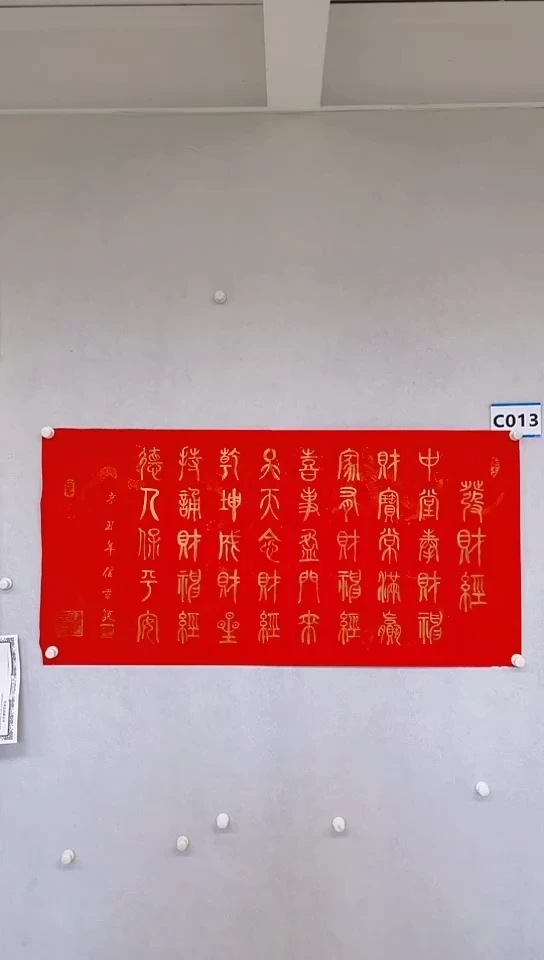 發財經
中堂奉財神
財寶常滿贏
家有財神經
喜事盈門來
天念財經
乾坤成財星
持誦財神經
德人保平安
辛丑年
C013